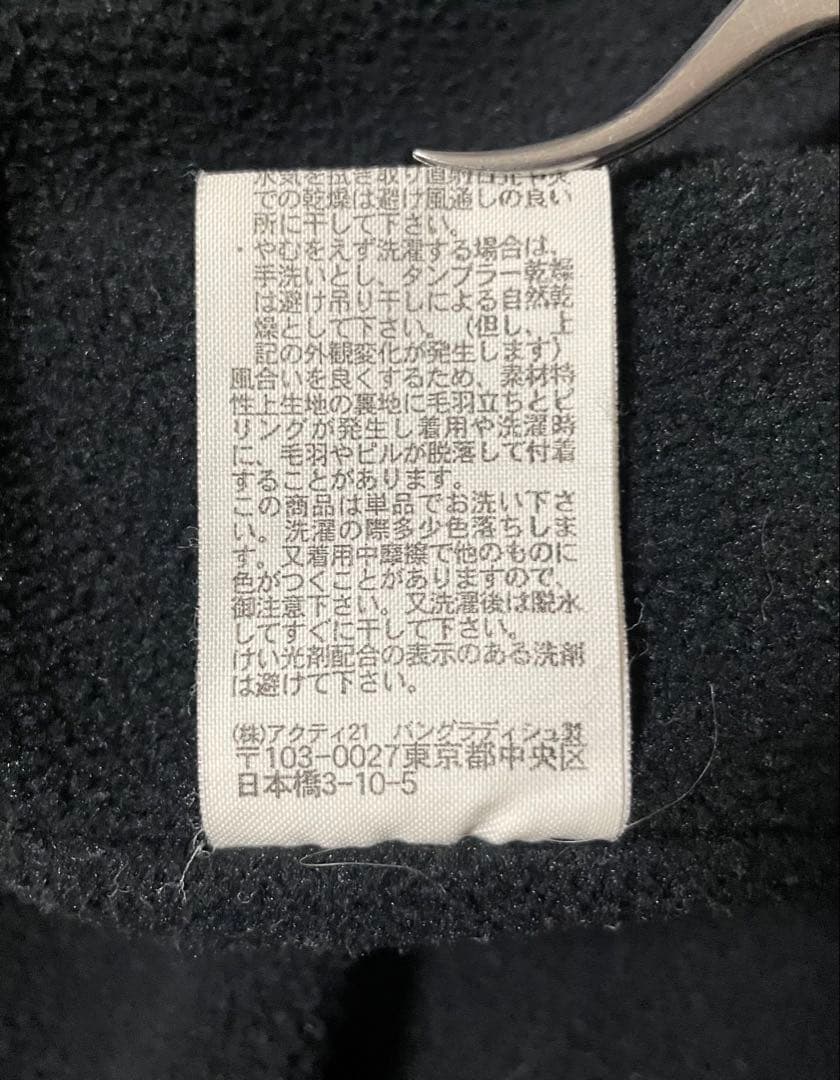 水気を拭き取り直射日光中央
での乾燥は避け風通しの良い
所に干して下さい。
・やむをえず洗濯する場合は、
手洗いとし、タンブラー乾燥
は避け吊り干しによる自然乾
燥として下さい。（但し、上
記の外観変化が発生します）
風合いを良くするため、素材特
性上生地の裏地に毛羽立ちとピ
リングが発生し着用や洗濯時
に、毛羽やピルが脱落して付着
することがあります。
この商品は単品でお洗い下さ
い。洗濯の際多少色落ちしま
す。又着用中摩擦で他のものに
色がつくことがありますので、
御注意下さい。又洗濯後は脱水
してすぐに干して下さい。
けい光剤配合の表示のある洗剤
は避けて下さい。
(株)アクティ21 バングラディシュ製
〒103-0027東京都中央区
日本橋3-10-5